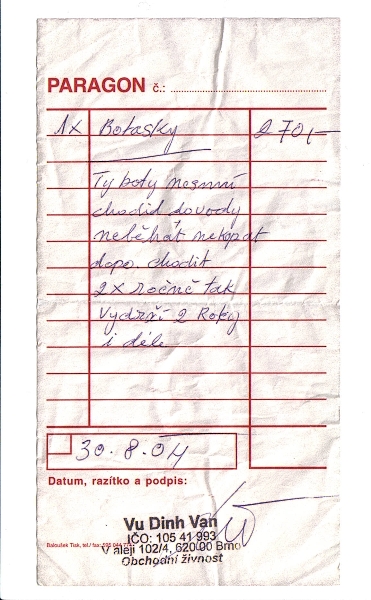 PARAGON č.:
1x Botasky 270,-
Ty boty nesmní
chodid do vody
neběhát nekopat
dopo. chodit
2x ročně tak
vydrží 2 Roky
i déle
30.8.04
Datum, razítko a podpis:
Vu Dinh Van
IČO: 105 41 993
V aleji 102/4, 620 00 Brno
Obchodní živnost
Baloušek Tisk, tel./ fax: